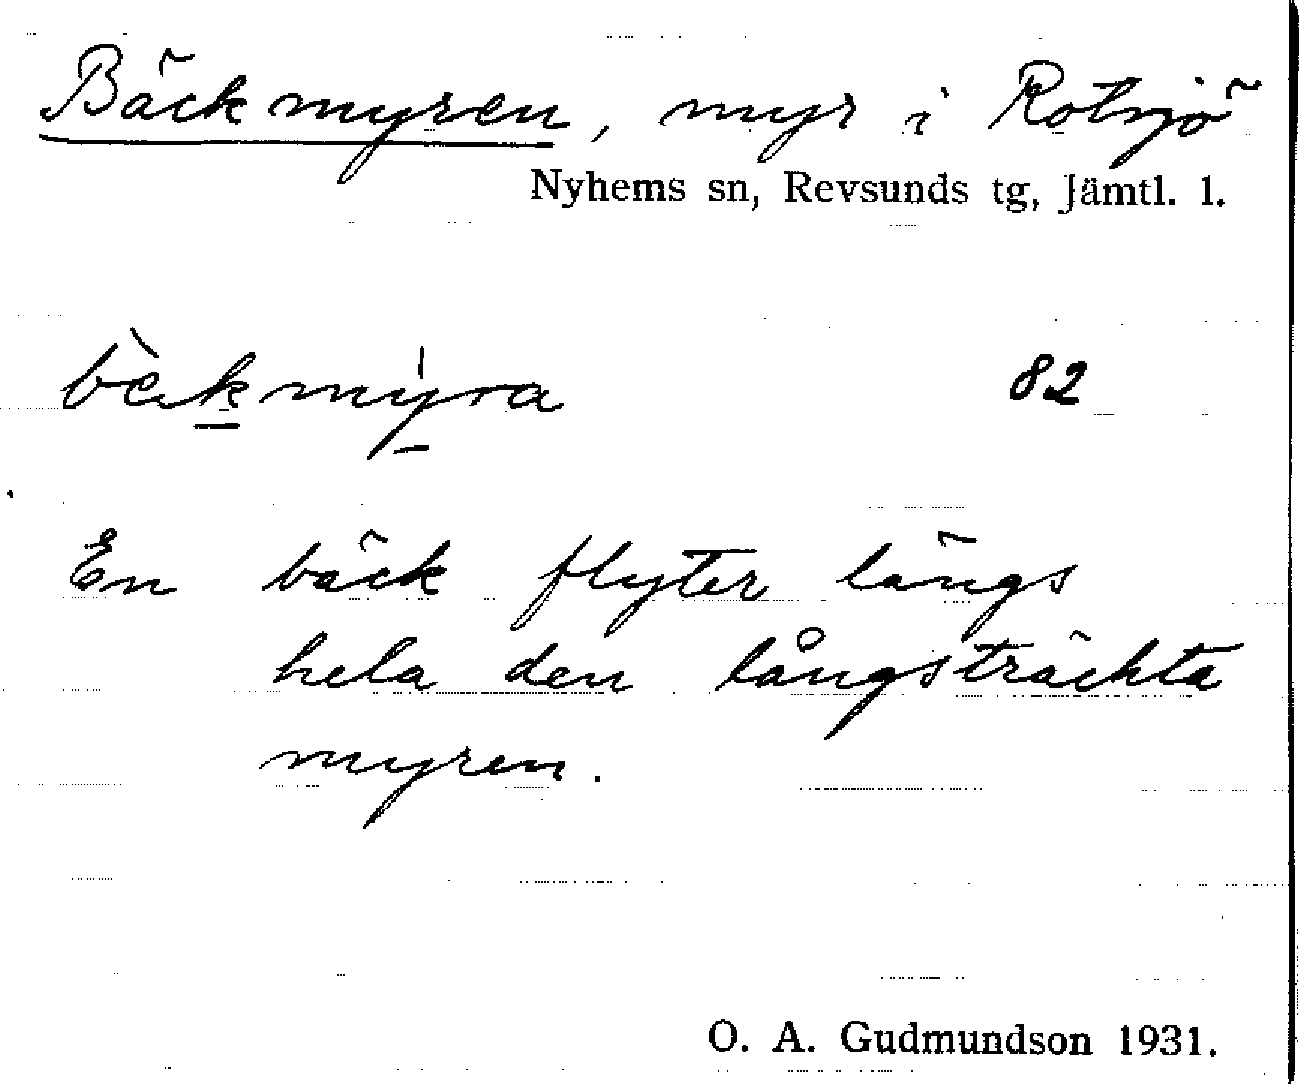 Bäckmyren, myr i Rotsjö
Nyhems sn, Revsunds tg, Jämtl. l.
bèkmýra 82
En bäck flyter längs
hela den långsträckta
myren.
O. A. Gudmundson 1931.